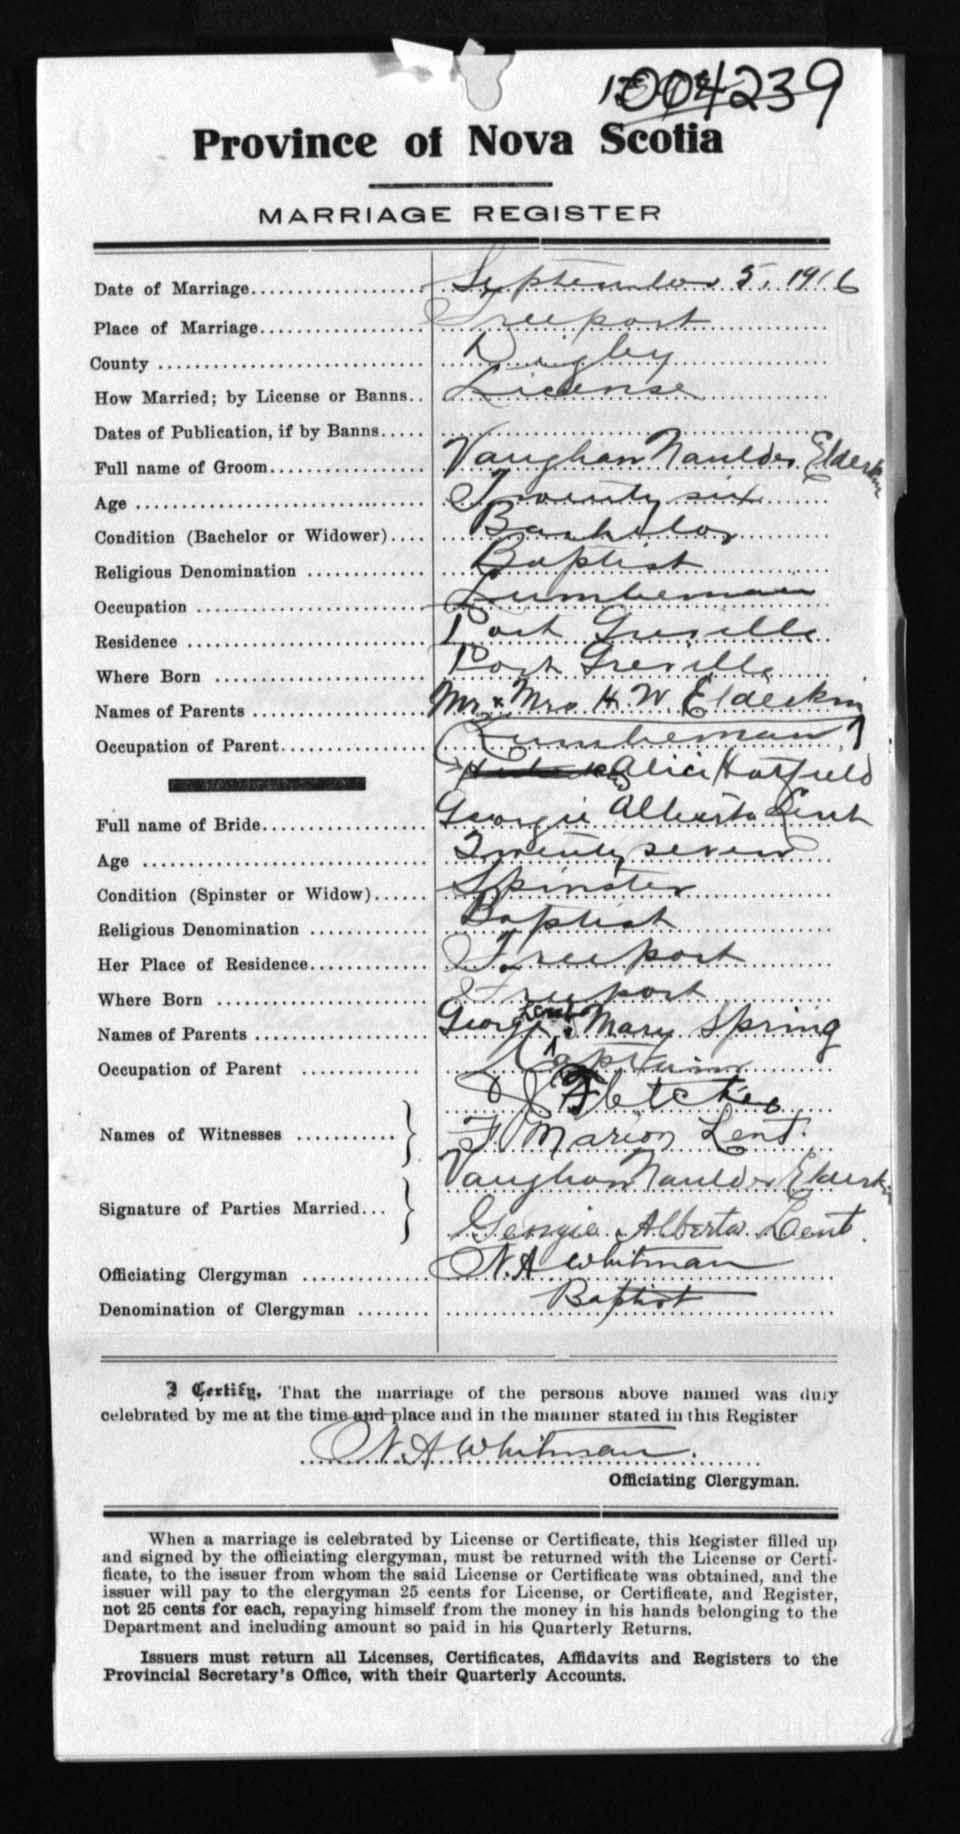 004239
Province of Nova Scotia
MARRIAGE REGISTER
Date of Marriage September 5, 1916
Place of Marriage Freeport
County Digby
How Married; by License or Banns License
Dates of Publication, if by Banns
Full name of Groom Vaughan Naulder Elderkin
Age Twenty six
Condition (Bachelor or Widower) Bachelor
Religious Denomination Baptist
Occupation Lumberman
Residence Port Greville
Where Born Port Greville
Names of Parents Mr & Mrs H. W. Elderkin
Occupation of Parent Lumberman
Alice Hatfield
Full name of Bride Georgie Alberta Lent
Age Twenty seven
Condition (Spinster or Widow) Spinster
Religious Denomination Baptist
Her Place of Residence Freeport
Where Born Freeport
Names of Parents George Lent & Mary Spring
Occupation of Parent Captain
Names of Witnesses Fletcher
F Marion Lent.
Signature of Parties Married Vaughan Naulder Elderkin
Georgie Alberta Lent.
Officiating Clergyman N. A Whitman
Denomination of Clergyman Baptist
I Certify, That the marriage of the persons above named was duly
celebrated by me at the time and place and in the manner stated in this Register
N. A Whitman.
Officiating Clergyman.
When a marriage is celebrated by License or Certificate, this Register filled up
and signed by the officiating clergyman, must be returned with the License or Certi-
ficate, to the issuer from whom the said License or Certificate was obtained, and the
issuer will pay to the clergyman 25 cents for License, or Certificate, and Register,
not 25 cents for each, repaying himself from the money in his hands belonging to the
Department and including amount so paid in his Quarterly Returns.
Issuers must return all Licenses, Certificates, Affidavits and Registers to the
Provincial Secretary's Office, with their Quarterly Accounts.